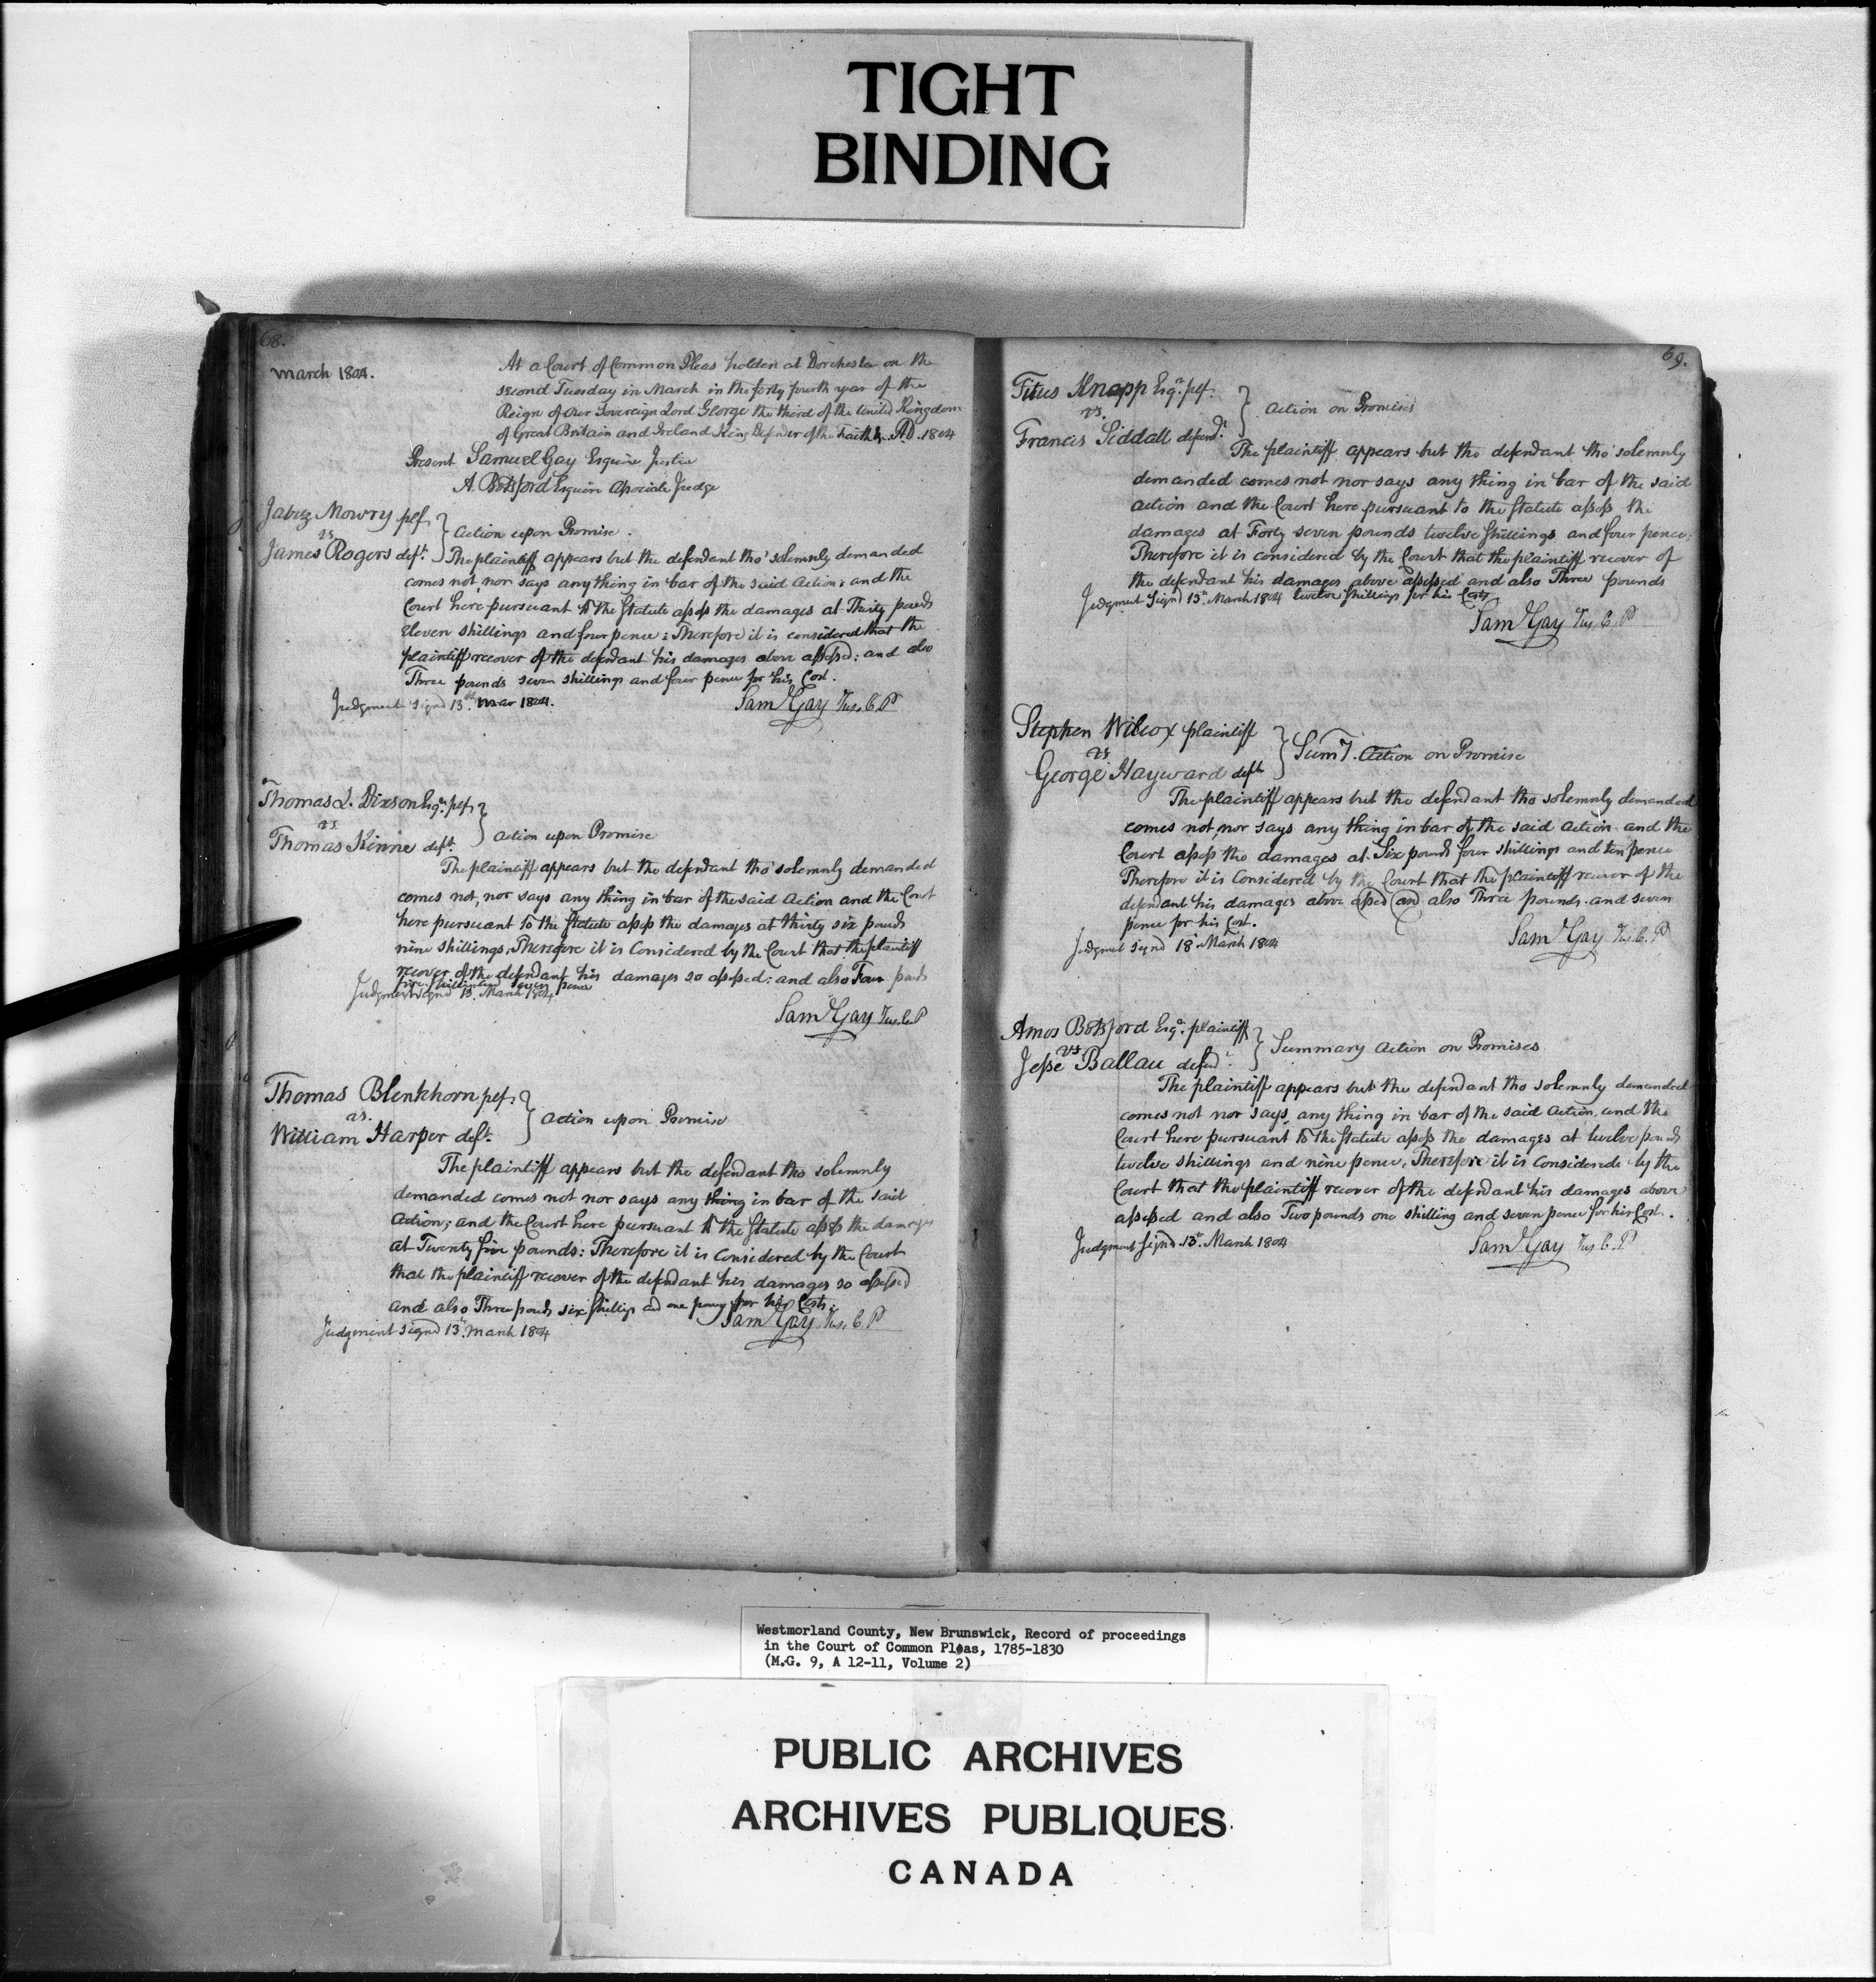 TIGHT
BINDING
68.
March 1804.
At a Court of Common Pleas holden at Dorchester on the
second Tuesday in March in the forty fourth year of the
Reign of our Sovereign Lord George the third of the United Kingdom
of Great Britain and Ireland King Defender of the Faith &c AD. 1804
Present Samuel Gay Esquire Justice
A. Botsford Esquire Associate Judge
Jabez Mowry plf.
vs
James Rogers deft.
Action upon Promise.
The plaintiff appears but the defendant tho' solemnly demanded
comes not, nor says any thing in bar of the said Action; and the
Court here pursuant to the Statute assess the damages at Thirty pounds
Eleven shillings and four pence: Therefore it is considered that the
plaintiff recover of the defendant his damages above assessed: and also
Three pounds seven shillings and four pence for his Cost.
Judgment Signd 13th. Mar 1804.
Sam Gay Jus. C. P
Thomas L. Dixson Esqr. plf.
vs
Thomas Kinne deft.
Action upon Promise
The plaintiff appears but the defendant tho' solemnly demanded
comes not, nor says any thing in bar of the said Action and the Court
here pursuant to the Statute assess the damages at thirty six pounds
nine shillings. Therefore it is Considered by the Court that the plaintiff
recover of the defendant his damages so assessed: and also Four pounds
five shillings and seven pence
Judgment signd 13. March 1804
Sam Gay Jus. C. P
Thomas Blenkhorn plf.
vs.
William Harper deft.
Action upon Promise
The plaintiff appears but the defendant tho solemnly
demanded comes not nor says any thing in bar of the said
Action; and the Court here pursuant to the Statute assess the damages
at Twenty five pounds: Therefore it is Considered by the Court
that the plaintiff recover of the defendant his damages so assessed
and also Three pounds six shillings and one penny for his Costs.
Judgment signd 13th. March 1804
Sam Gay Jus. C. P
69.
Titus Knapp Esqr. plf.
vs.
Francis Siddall defendt.
Action on Promises
The plaintiff appears but the defendant tho' solemnly
demanded comes not nor says any thing in bar of the said
Action and the Court here pursuant to the Statute assess the
damages at Forty seven pounds twelve shillings and four pence:
Therefore it is considered by the Court that the plaintiff recover of
the defendant his damages above assessed and also Three pounds
twelve shillings for his Costs
Judgment Signd 13th March 1804
Sam Gay Jus. C. P
Stephen Wilcox plaintiff
vs
George Hayward deft
Sumy. Action on Promise
The plaintiff appears but the defendant tho solemnly demanded
comes not, nor says any thing in bar of the said Action and the
Court assess the damages at Six pounds four shillings and ten pence
Therefore it is Considered by the Court that the plaintiff recover of the
defendant his damages above assed and also Three pounds and seven
pence for his Cost.
Judgmet signd 18 March 1804
Sam Gay Jus. C. P
Amos Botsford Esqr. plaintiff
vs
Jesse Ballau defend.
Summary Action on Promises
The plaintiff appears but the defendant tho solemnly demanded
comes not nor says, any thing in bar of the said Action, and the
Court here pursuant to the Statute assess the damages at twelve pounds
twelve shillings and nine pence. Therefore it is Considerede by the
Court that the plaintiff recover of the defendant his damages above
assessed and also Two pounds one shilling and seven pence for his Cost.
Judgment Signd 13th. March 1804
Sam Gay Jus C. P
Westmorland County, New Brunswick, Record of proceedings
in the Court of Common Pleas, 1785-1830
(M.G. 9, A 12-11, Volume 2)
PUBLIC ARCHIVES
ARCHIVES PUBLIQUES
CANADA